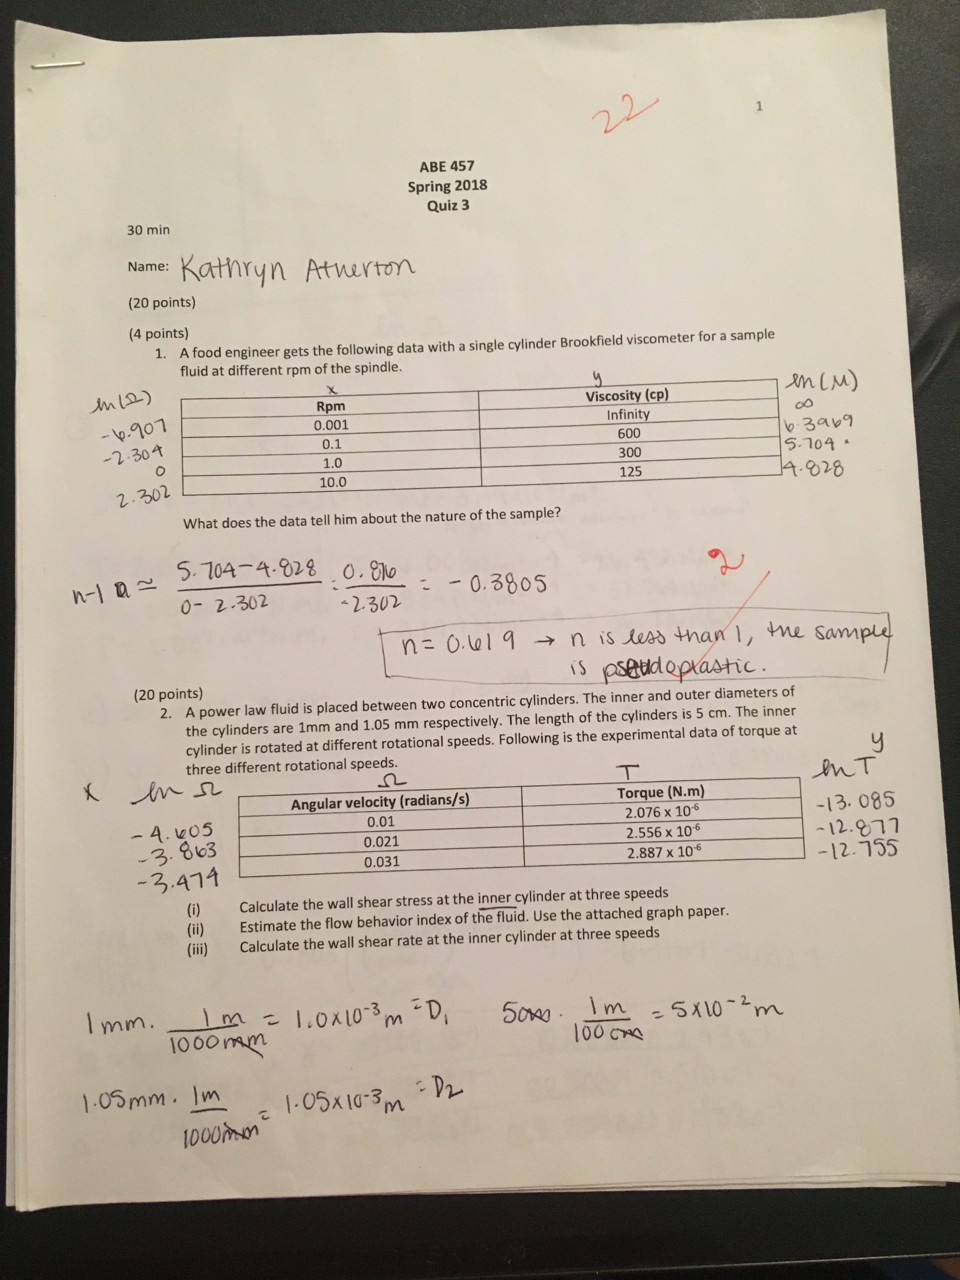 22
1
ABE 457
Spring 2018
Quiz 3
30 min
Name: Kathryn Atherton
(20 points)
(4 points)
1. A food engineer gets the following data with a single cylinder Brookfield viscometer for a sample
fluid at different rpm of the spindle.
ln(Ω) x y ln(M)
Rpm Viscosity (cp)
-6.907 0.001 Infinity ∞
-2.304 0.1 600 6.3969
0 1.0 300 5.704
2.302 10.0 125 4.828
What does the data tell him about the nature of the sample?
n-1 ≃ 5.704-4.828 / 0-2.302 = 0.876 / -2.302 = -0.3805
2
n=0.619 → n is less than 1, the sample
is pseudoplastic.
(20 points)
2. A power law fluid is placed between two concentric cylinders. The inner and outer diameters of
the cylinders are 1mm and 1.05 mm respectively. The length of the cylinders is 5 cm. The inner
cylinder is rotated at different rotational speeds. Following is the experimental data of torque at
three different rotational speeds.
x ln Ω Ω T ln T y
Angular velocity (radians/s) Torque (N.m)
-4.605 0.01 2.076 x 10⁻⁶ -13.085
-3.863 0.021 2.556 x 10⁻⁶ -12.877
-3.474 0.031 2.887 x 10⁻⁶ -12.755
(i) Calculate the wall shear stress at the inner cylinder at three speeds
(ii) Estimate the flow behavior index of the fluid. Use the attached graph paper.
(iii) Calculate the wall shear rate at the inner cylinder at three speeds
1mm. 1m / 1000mm = 1.0x10⁻³m = D₁ 5cm · 1m / 100cm = 5x10⁻²m
1.05mm. 1m / 1000mm = 1.05x10⁻³m = D₂